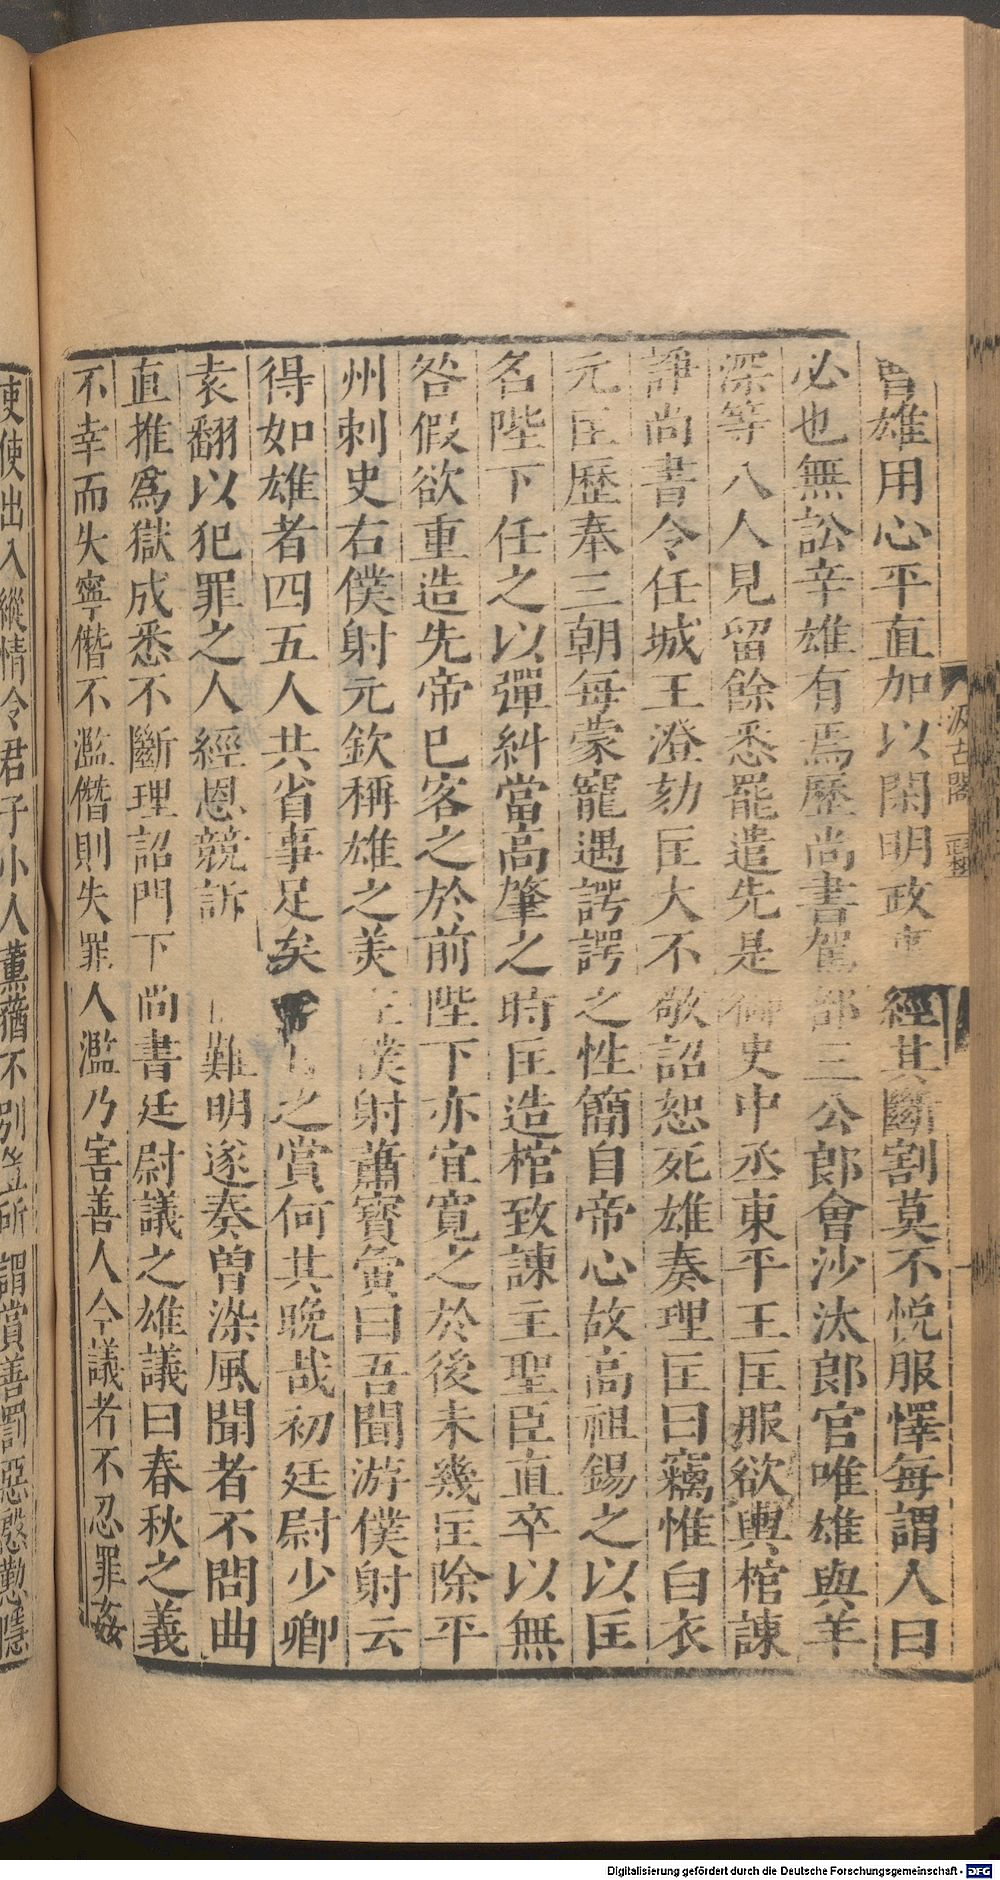 曹雄用心平直加以閑明政事經其斷割莫不悅服懌每謂人曰
必也無訟辛雄有焉歷尚書駕部三公郎會沙汰郎官唯雄與羊
深等八人見留餘悉罷遣先是御史中丞東平王匡服欲輿棺諫
諍尚書令任城王澄劾匡大不敬詔恕死雄奏理匡曰竊惟白衣
元匡歷奉三朝每蒙寵遇諤諤之性簡自帝心故高祖錫之以匡
名陛下任之以彈糾當高肇之時匡造棺致諫主聖臣直卒以無
咎假欲重造先帝已容之於前陛下亦宜寬之於後未幾匡除平
州刺史右僕射元欽稱雄之美左僕射蕭寶夤曰吾聞游僕射云
得如雄者四五人共省事足矣之賞何其晚哉初廷尉少卿
袁翻以犯罪之人經恩競訴難明遂奏曾染風聞者不問曲
直推爲獄成悉不斷理詔門下尚書廷尉議之雄議曰春秋之義
不幸而失寧僭不濫僭則失罪人濫乃害善人今議者不忍罪姦
使使出入縱情令君子小人薰蕕不別豈所謂賞善罰惡慇懃隱
汲古閣
Digitalisierung gefördert durch die Deutsche Forschungsgemeinschaft - DFG